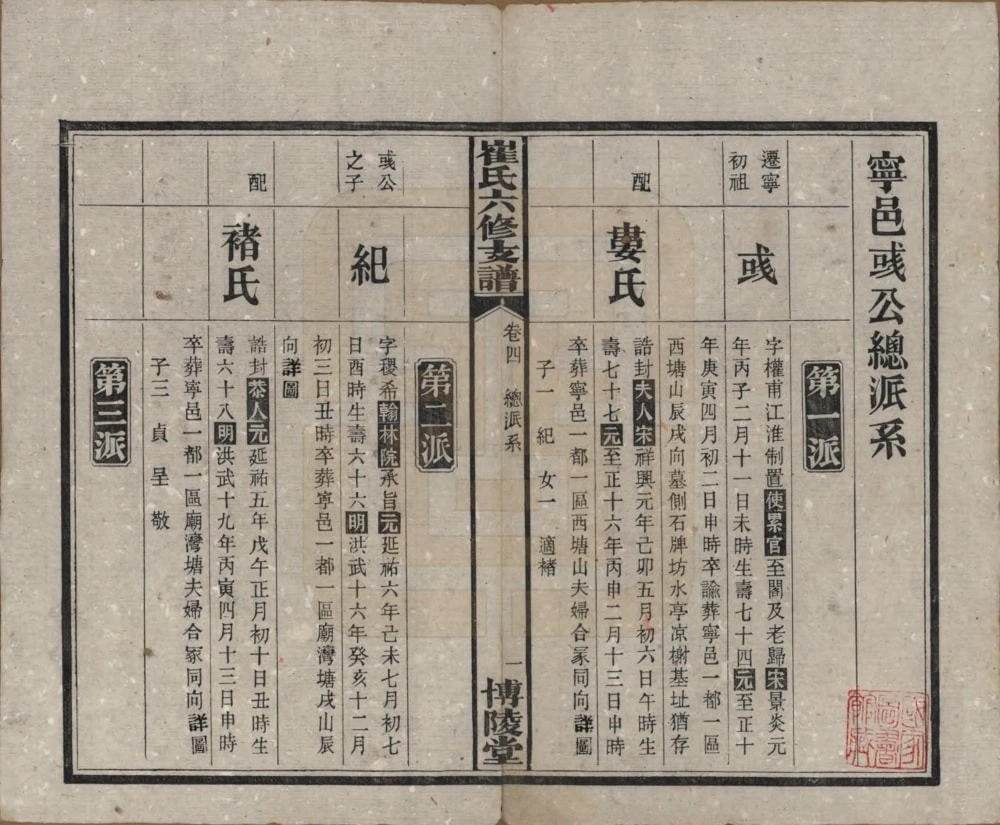 寧邑彧公總派系
第一派
遷寧初祖
彧
字權甫江淮制置使累官至閣及老歸宋景炎元
年丙子二月十一日未時生壽七十四元至正十
年庚寅四月初二日申時卒諭葬寧邑一都一區
西塘山辰戌向墓側石牌坊水亭凉榭基址猶存
配
婁氏
誥封夫人宋祥興元年己卯五月初六日午時生
壽七十七元至正十六年丙申二月十三日申時
卒葬寧邑一都一區西塘山夫婦合冢同向詳圖
子一 紀 女一 適褚
崔氏六修支譜
卷四 總派系
一
博陵堂
第二派
彧公之子
紀
字稷希翰林院承旨元延祐六年己未七月初七
日酉時生壽六十六明洪武十六年癸亥十二月
初三日丑時卒葬寧邑一都一區廟灣塘戌山辰
向詳圖
配
褚氏
誥封恭人元延祐五年戊午正月初十日丑時生
壽六十八明洪武十九年丙寅四月十三日申時
卒葬寧邑一都一區廟灣塘夫婦合冢同向詳圖
子三 貞 呈 敬
第三派